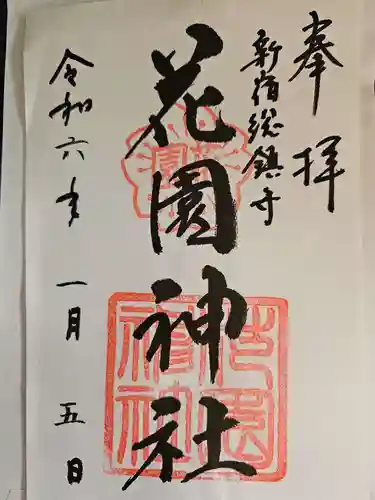 奉拝
新宿総鎮守
花園神社
令和六年一月五日